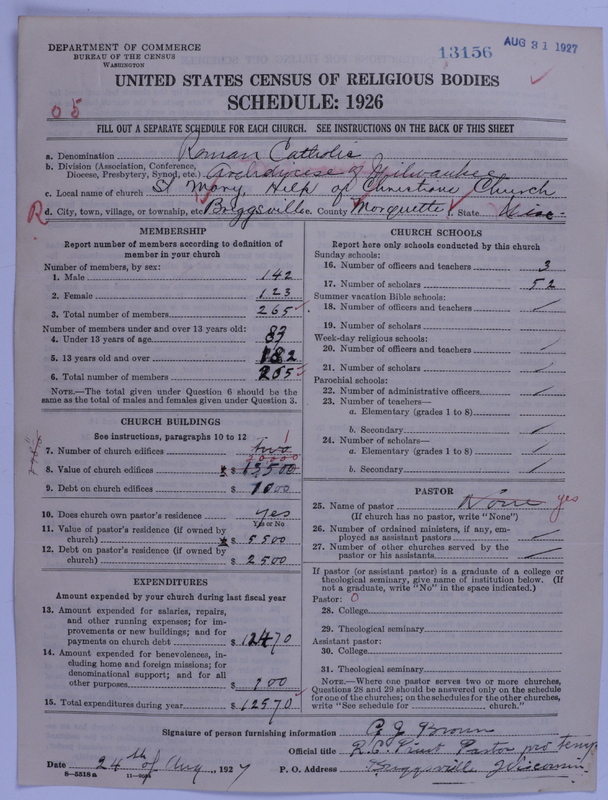 DEPARTMENT OF COMMERCE
BUREAU OF THE CENSUS
WASHINGTON
13156
AUG 31 1927
UNITED STATES CENSUS OF RELIGIOUS BODIES
SCHEDULE: 1926
05
FILL OUT A SEPARATE SCHEDULE FOR EACH CHURCH. SEE INSTRUCTIONS ON THE BACK OF THIS SHEET
a. Denomination Roman Catholic
b. Division (Association, Conference, Diocese, Presbytery, Synod, etc.) Archdiocese of Milwaukee
c. Local name of church St Mary Help of Christians Church
R d. City, town, village, or township, etc. Briggsville County Marquette State Wisc-
MEMBERSHIP
Report number of members according to definition of
member in your church
Number of members, by sex:
1. Male 142
2. Female 123
3. Total number of members 265
Number of members under and over 13 years old:
4. Under 13 years of age 83
5. 13 years old and over 182
6. Total number of members 265
NOTE.—The total given under Question 6 should be the
same as the total of males and females given under Question 3.
CHURCH BUILDINGS
See instructions, paragraphs 10 to 12
7. Number of church edifices Two 1
8. Value of church edifices $ 13500
9. Debt on church edifices $ 1000
10. Does church own pastor's residence yes
Yes or No
11. Value of pastor's residence (if owned by
church) $ 5500
12. Debt on pastor's residence (if owned by
church) $ 2500
EXPENDITURES
Amount expended by your church during last fiscal year
13. Amount expended for salaries, repairs,
and other running expenses; for im-
provements or new buildings; and for
payments on church debt $ 12470
14. Amount expended for benevolences, in-
cluding home and foreign missions; for
denominational support; and for all
other purposes $ 100
15. Total expenditures during year $ 12570
CHURCH SCHOOLS
Report here only schools conducted by this church
Sunday schools:
16. Number of officers and teachers 3
17. Number of scholars 52
Summer vacation Bible schools:
18. Number of officers and teachers
19. Number of scholars
Week-day religious schools:
20. Number of officers and teachers
21. Number of scholars
Parochial schools:
22. Number of administrative officers
23. Number of teachers—
a. Elementary (grades 1 to 8)
b. Secondary
24. Number of scholars—
a. Elementary (grades 1 to 8)
b. Secondary
PASTOR
25. Name of pastor None yes
(If church has no pastor, write "None")
26. Number of ordained ministers, if any, em-
ployed as assistant pastors
27. Number of other churches served by the
pastor or his assistants
If pastor (or assistant pastor) is a graduate of a college or
theological seminary, give name of institution below. (If
not a graduate, write "No" in the space indicated.)
Pastor: 0
28. College
29. Theological seminary
Assistant pastor:
30. College
31. Theological seminary
NOTE.—Where one pastor serves two or more churches,
Questions 28 and 29 should be answered only on the schedule
for one of the churches; on the schedules for the other churches,
write "See schedule for church."
Signature of person furnishing information Brown
Official title R.C. Priest Pastor pro temp
Date 24th of Aug, 1927 P. O. Address Briggsville Wisconsin
8-5518a